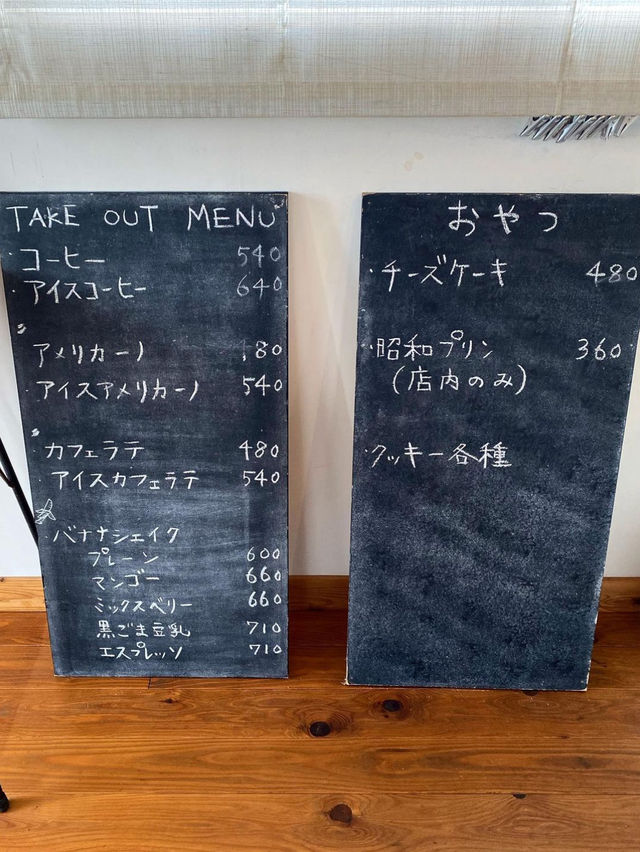 TAKE OUT MENU
・コーヒー 540
・アイスコーヒー 640
・アメリカーノ 480
・アイスアメリカーノ 540
・カフェラテ 480
・アイスカフェラテ 540
・バナナシェイク
プレーン 600
マンゴー 660
ミックスベリー 660
黒ごま豆乳 710
エスプレッソ 710
おやつ
・チーズケーキ 480
・昭和プリン 360
(店内のみ)
・クッキー各種